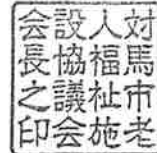 対馬市老
人福祉施
設協議会
会長之印